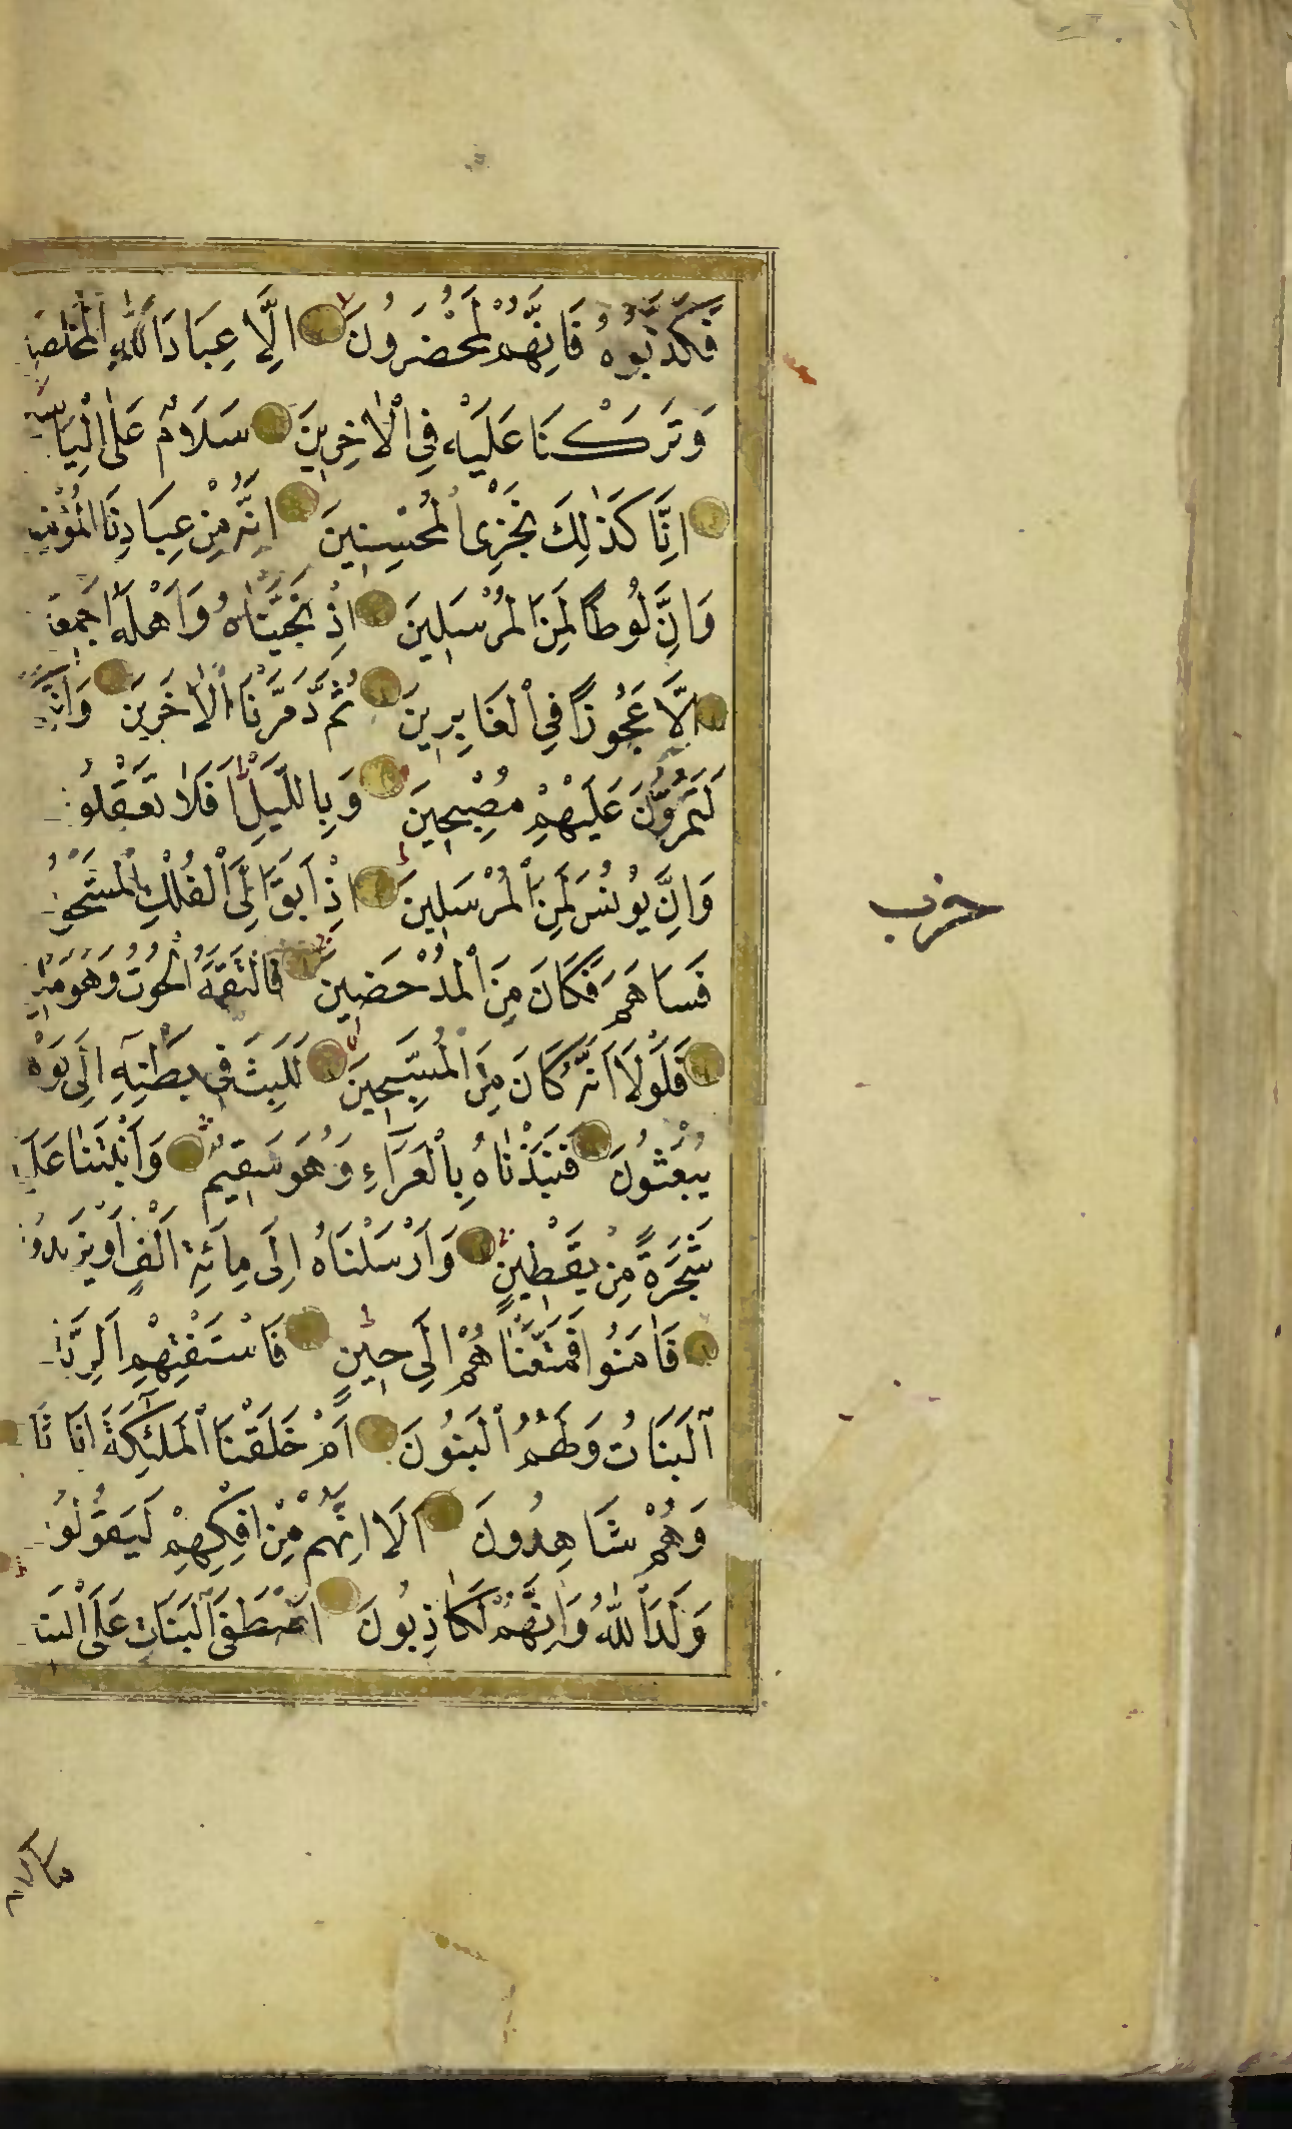 فَكَذَّبُوهُ فَاِنَّهُمْ لَمُحْضَرُونَ اِلَّا عِبَادَ اللّٰهِ الْمُخْلَصِ
وَتَرَكْنَا عَلَيْهِ فِي الْاٰخِرِينَ سَلَامٌ عَلٰى اِلْيَاسِ
اِنَّا كَذٰلِكَ نَجْزِى الْمُحْسِنِينَ اِنَّهُ مِنْ عِبَادِنَا الْمُؤْمِنِ
وَاِنَّ لُوطًا لَمِنَ الْمُرْسَلِينَ اِذْ نَجَّيْنَاهُ وَاَهْلَهُ اَجْمَعِ
اِلَّا عَجُوزًا فِي الْغَابِرِينَ ثُمَّ دَمَّرْنَا الْاٰخَرِينَ وَاِنَّكُ
لَتَمُرُّونَ عَلَيْهِمْ مُصْبِحِينَ وَبِاللَّيْلِ اَفَلَا تَعْقِلُو
وَاِنَّ يُونُسَ لَمِنَ الْمُرْسَلِينَ اِذْ اَبَقَ اِلَى الْفُلْكِ الْمَشْحُو
فَسَاهَمَ فَكَانَ مِنَ الْمُدْحَضِينَ فَالْتَقَمَهُ الْحُوتُ وَهُوَ مُلِ
فَلَوْلَا اَنَّهُ كَانَ مِنَ الْمُسَبِّحِينَ لَلَبِثَ فِي بَطْنِهِ اِلٰى يَوْمِ
يُبْعَثُونَ فَنَبَذْنَاهُ بِالْعَرَاءِ وَهُوَ سَقِيمٌ وَاَنْبَتْنَا عَلَ
شَجَرَةً مِنْ يَقْطِينٍ وَاَرْسَلْنَاهُ اِلٰى مِائَةِ اَلْفٍ اَوْ يَزِيدُو
فَاٰمَنُوا فَمَتَّعْنَاهُمْ اِلٰى حِينٍ فَاسْتَفْتِهِمْ اَلِرَبِّ
الْبَنَاتُ وَلَهُمُ الْبَنُونَ اَمْ خَلَقْنَا الْمَلٰٓئِكَةَ اِنَاثًا
وَهُمْ شَاهِدُونَ اَلَا اِنَّهُمْ مِنْ اِفْكِهِمْ لَيَقُولُو
وَلَدَ اللّٰهُ وَاِنَّهُمْ لَكَاذِبُونَ اَصْطَفَى الْبَنَاتِ عَلَى الْبَن
حزب
مالكم